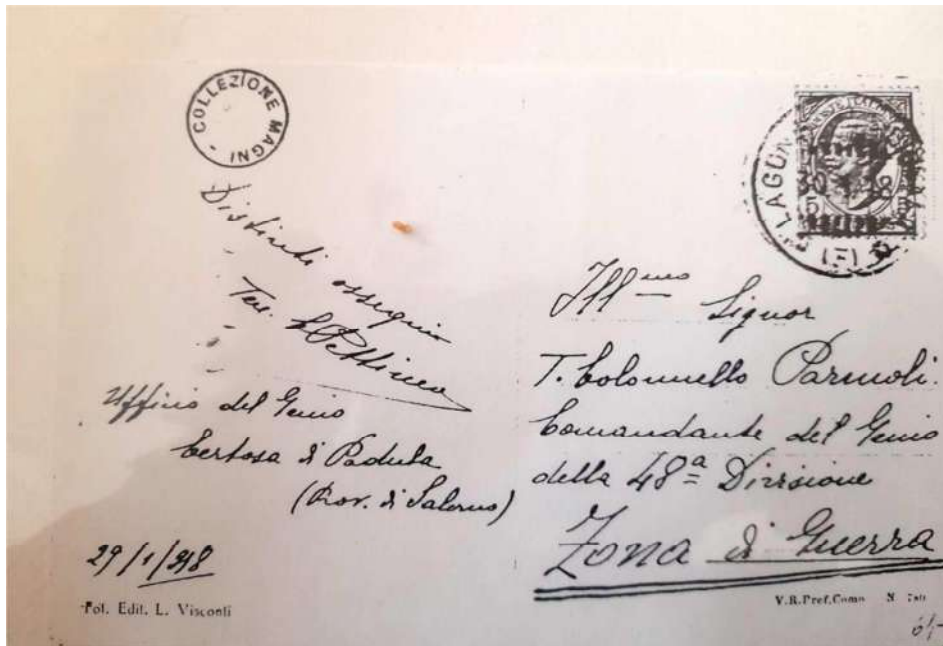 COLLEZIONE MAGNI -
Distinti ossequi
Ten.
Ufficio del Genio
Certosa di Padula
(Prov. di Salerno)
29/1/918
Fot. Edit. L. Visconti
LAGUN
(F)
Ill.mo Signor
T. Colonnello
Comandante del Genio
della 48ª Divisione
Zona di Guerra
V.R.Pref.Como N
64